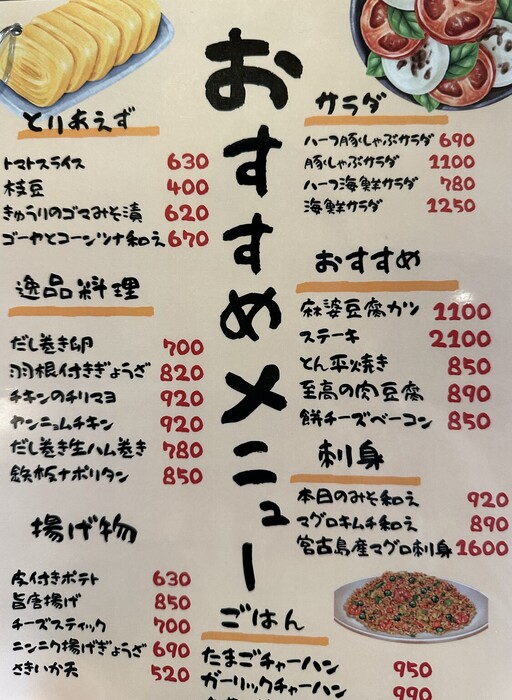 おすすめメニュー
とりあえず
トマトスライス 630
枝豆 400
きゅうりのゴマみそ漬 620
ゴーヤとコーンツナ和え 670
逸品料理
だし巻き卵 700
羽根付きぎょうざ 820
チキンのチリマヨ 920
ヤンニョムチキン 920
だし巻き生ハム巻き 780
鉄板ナポリタン 850
揚げ物
皮付きポテト 630
旨唐揚げ 850
チーズスティック 700
ニンニク揚げぎょうざ 690
さきいか天 520
サラダ
ハーフ豚しゃぶサラダ 690
豚しゃぶサラダ 1100
ハーフ海鮮サラダ 780
海鮮サラダ 1250
おすすめ
麻婆豆腐カツ 1100
ステーキ 2100
とん平焼き 850
至高の肉豆腐 890
餅チーズベーコン 850
刺身
本日のみそ和え 920
マグロキムチ和え 890
宮古島産マグロ刺身 1600
ごはん
たまごチャーハン 950
ガーリックチャーハン 990